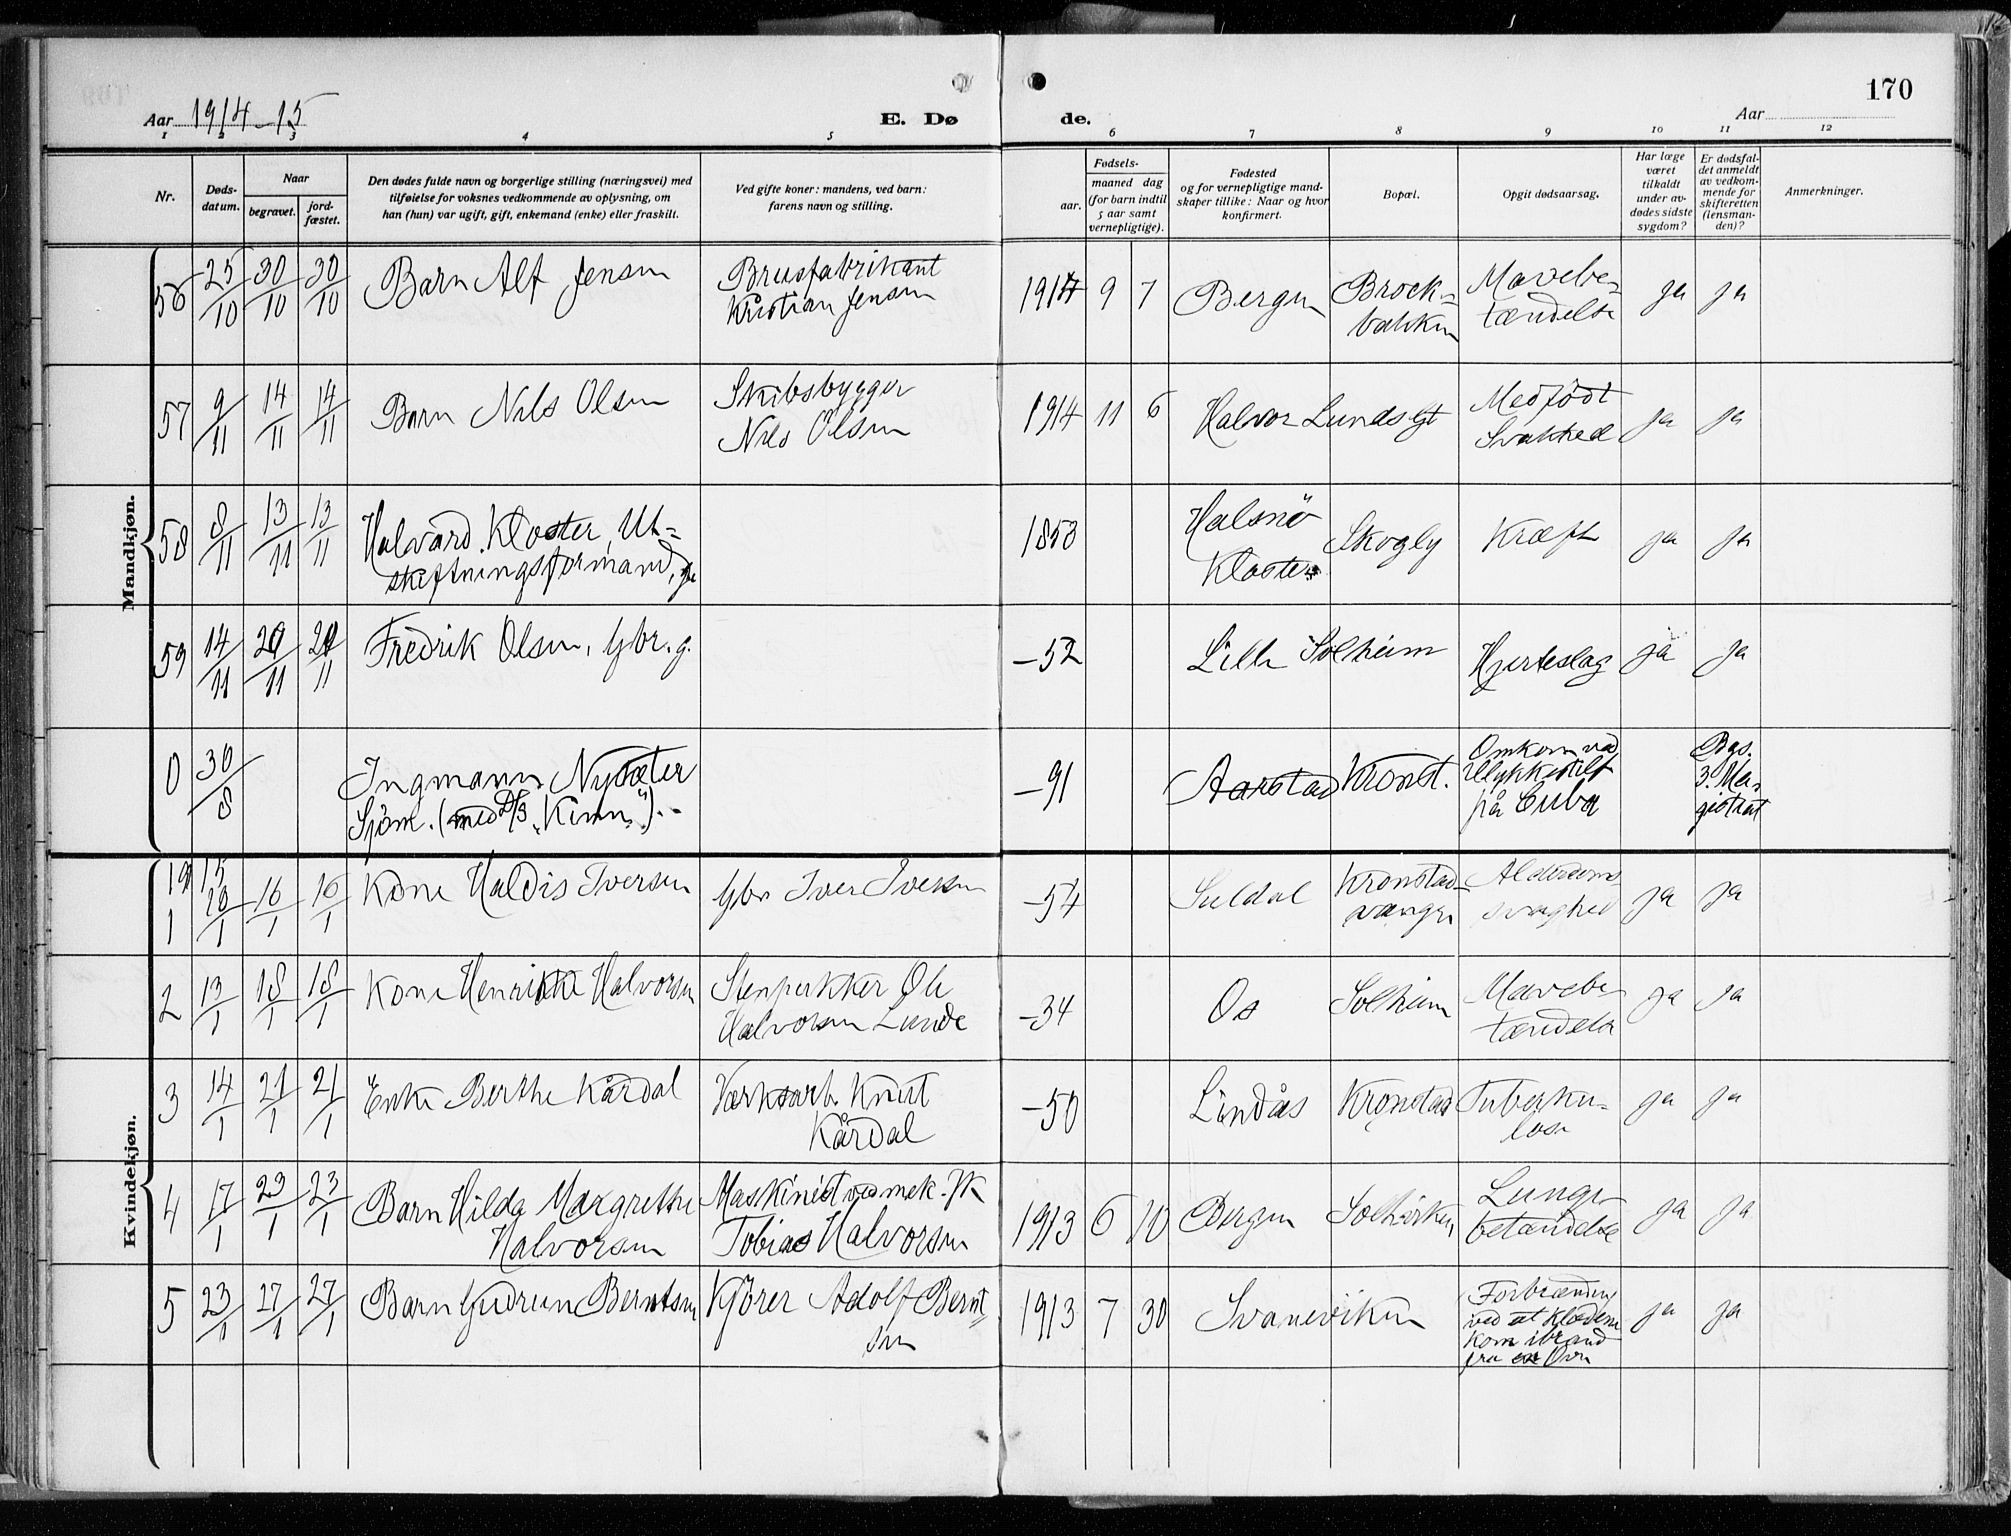 Aar 1914-15
E. Dø
de.
170
Aar
1 2 3 4 5 6 7 8 9 10 11 12
Nr.
Døds-
datum.
Naar
begravet.
jord-
fæstet.
Den dødes fulde navn og borgerlige stilling (næringsvei) med
tilføielse for voksnes vedkommende av oplysning, om
han (hun) var ugift, gift, enkemand (enke) eller fraskilt.
Ved gifte koner: mandens, ved barn:
farens navn og stilling.
Fødsels-
aar.
maaned dag
(for barn indtil
5 aar samt
vernepligtige).
Fødested
og for vernepligtige mand-
skaper tillike: Naar og hvor
konfirmert.
Bopæl.
Opgit dødsaarsag.
Har læge
været
tilkaldt
under av-
dødes sidste
sygdom?
Er dødsfal-
det anmeldt
av vedkom-
mende for
skifteretten
(lensman-
den)?
Anmerkninger.
Mandkjøn.
56 25/10 30/10 30/10 Barn Alf Jensen
Brusfabrikant
Kristian Jensen
1914 9 7 Bergen
Brock-
bakken
Mavebe-
tændelse
ja ja
57 9/11 14/11 14/11 Barn Nils Olsen
Skibsbygger
Nils Olsen
1914 11 6 Halvor Lunds gt
Medfødt
Svakhed
ja ja
58 8/11 13/11 13/11 Halvard Kloster, Ut-
skiftningsformand,
1853
Halsnö
Kloster
Skogly Kræft ja ja
59 14/11 20/11 Fredrik Olsen, gbr. g.
-52 Lille Solheim Hjerteslag ja ja
0 30/8 Ingmann Nysæter
Sjöm. (med D/S "Kinn").-
-91 Aarstad Kronst.
Omkom ved
Ulykkestilf
på Cuba
Bgs.
3. Ma-
gistrat
Kvindekjøn.
19 15
1 16/1 16/1 Kone Haldis Iversen gbr Iver Iversen
-54 Suldal
Kronstad-
vangen
Alderdoms
svaghed
ja ja
2 13/1 18/1 18/1 Kone Henrikke Halvorsen
Stenpukker Ole
Halvorsen Lunde
-34 Os Solheim
Mavebe
tændelse
ja ja
3 14/1 21/1 21/1 Enke Berthe Kårdal
Værksarb. Knut
Kårdal
-50 Lindås Kronstad
Tuberku-
lose
ja ja
4 17/1 23/1 23/1 Barn Hilda Margrethe
Halvorsen
Maskinist ved mek.
Tobias Halvorsen
1913 6 10 Bergen
Lunge
betændelse
ja ja
5 23/1 27/1 27/1 Barn Gudrun Berntsen
Kjörer Adolf Bernt
sen
1913 7 30 Svaneviken
Forbrænding
ved at klædene
kom i brand
fra en Ovn
ja ja